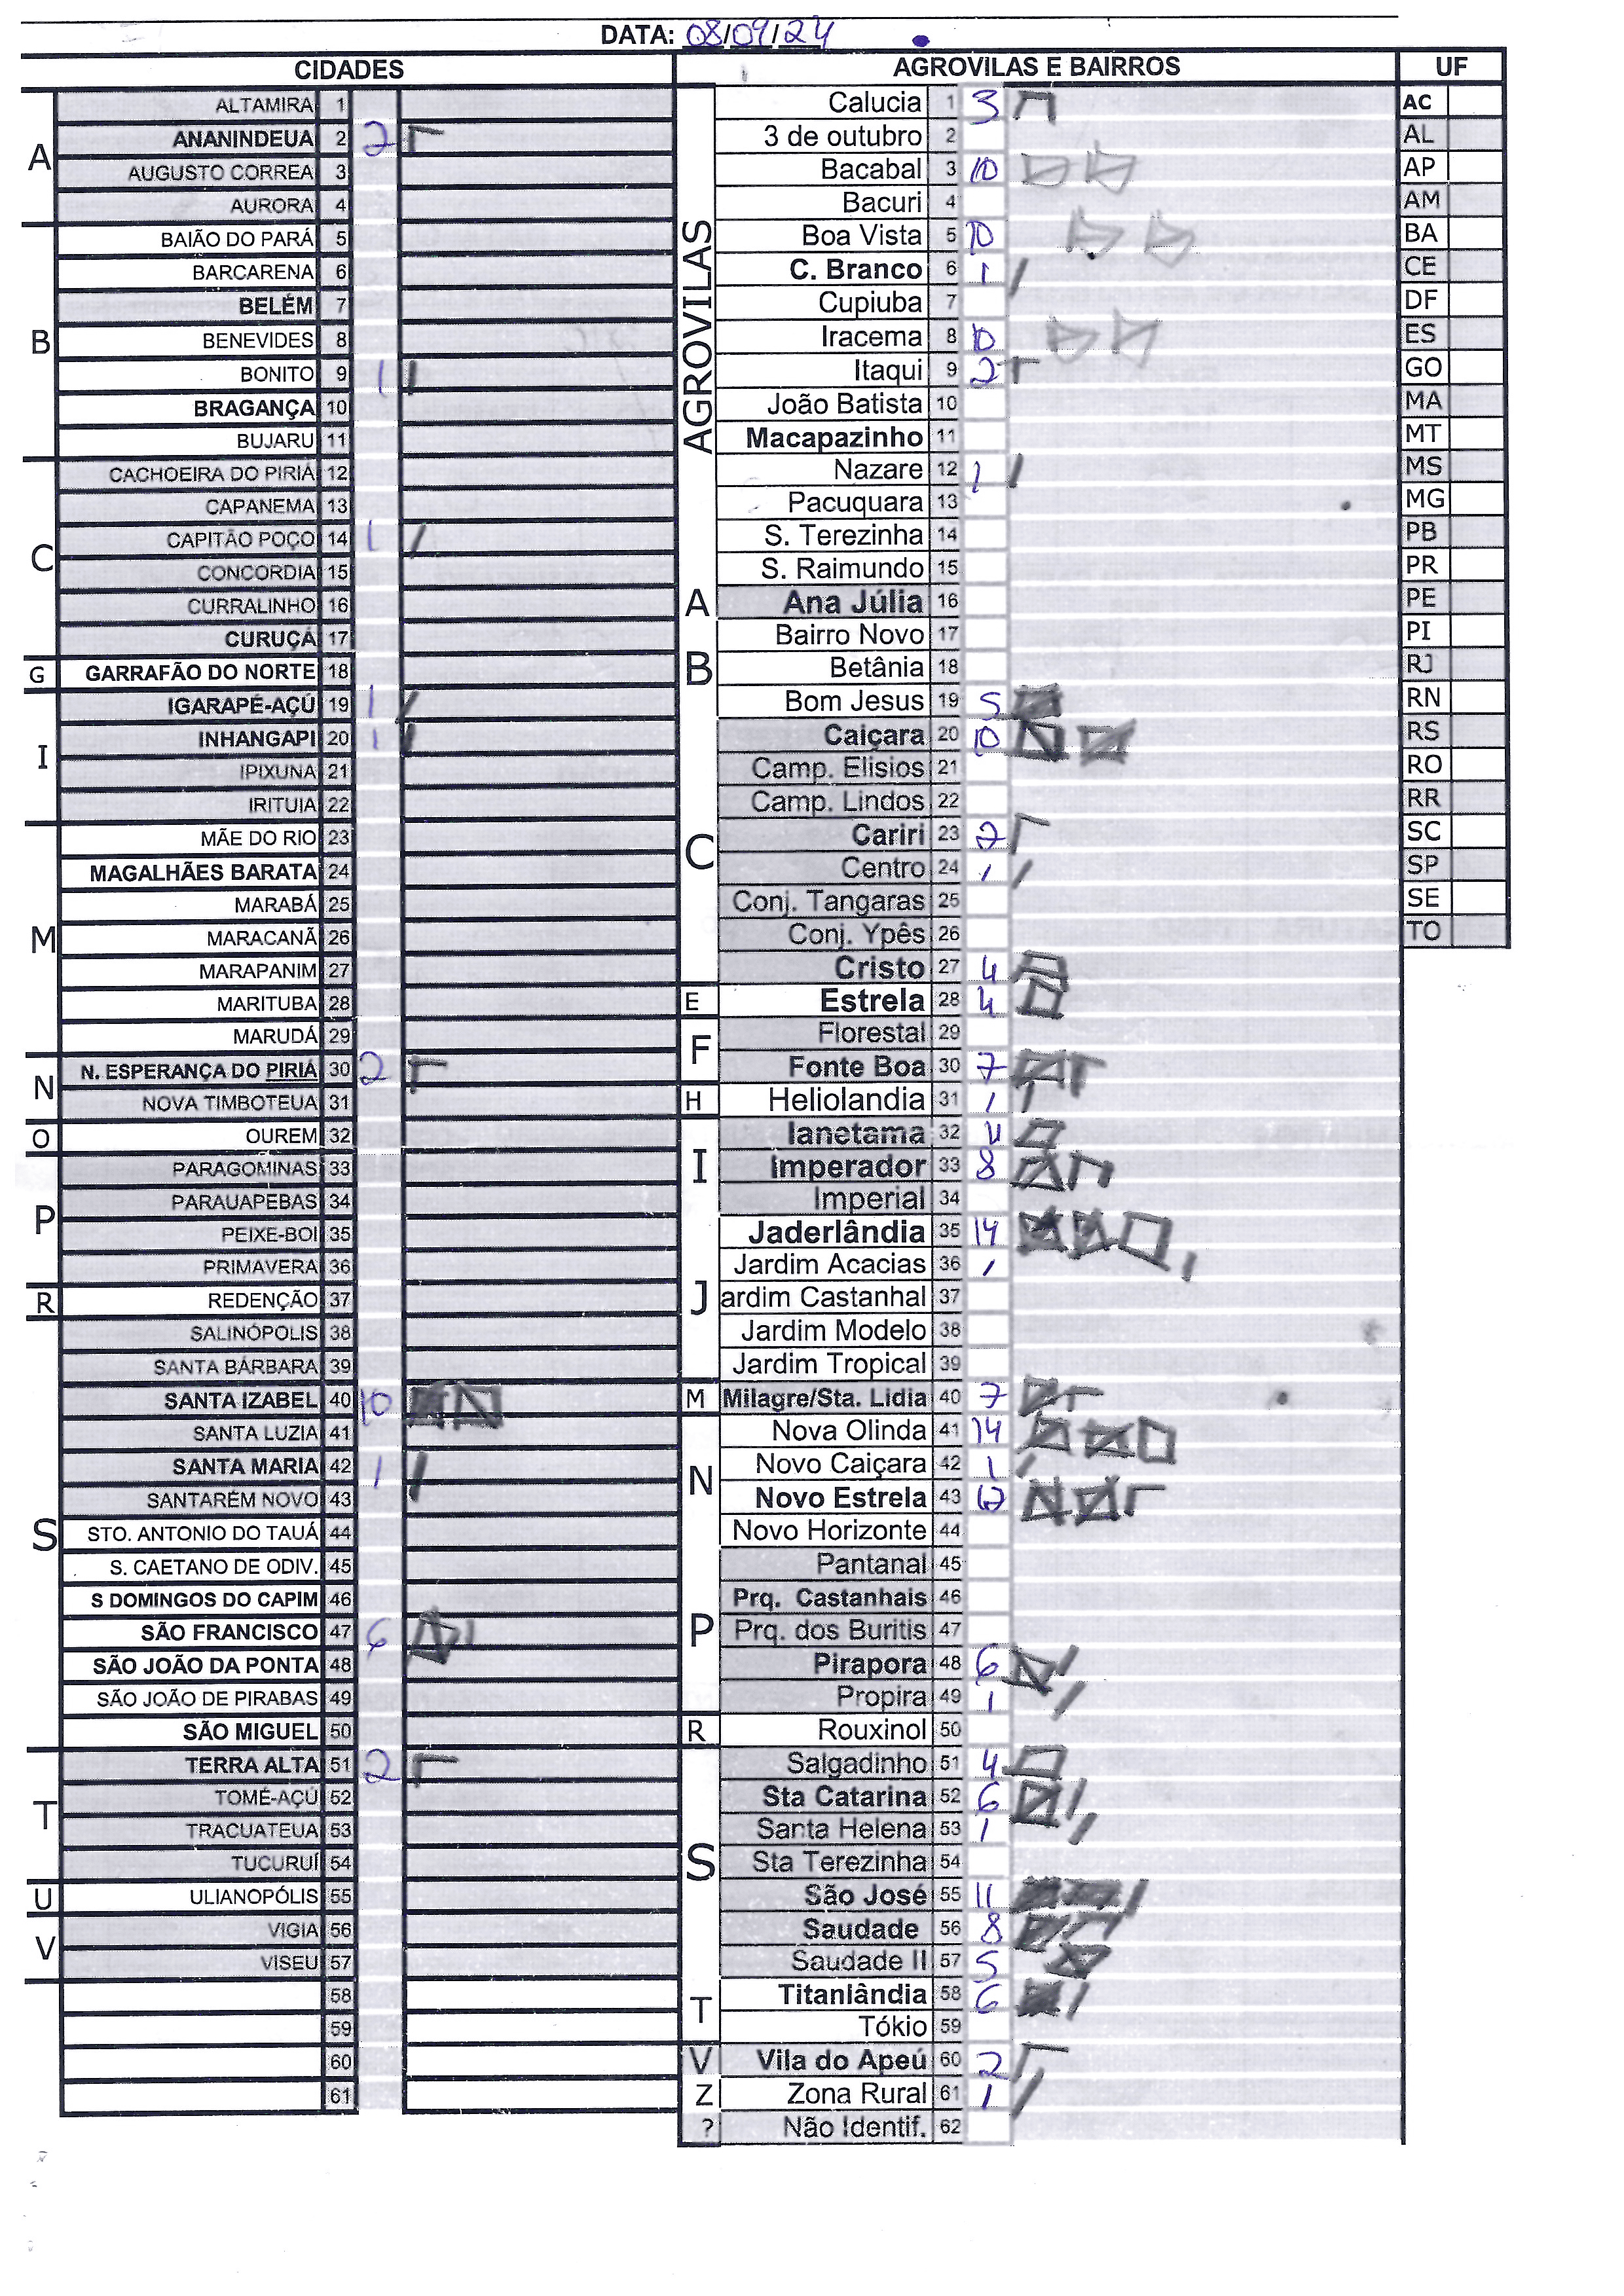 DATA: 08/09/24
CIDADES
A
ALTAMIRA 1
ANANINDEUA 2 2
AUGUSTO CORREA 3
AURORA 4
B
BAIÃO DO PARÁ 5
BARCARENA 6
BELÉM 7
BENEVIDES 8
BONITO 9 1
BRAGANÇA 10
BUJARU 11
C
CACHOEIRA DO PIRIÁ 12
CAPANEMA 13
CAPITÃO POÇO 14 1
CONCORDIA 15
CURRALINHO 16
CURUÇÁ 17
G
GARRAFÃO DO NORTE 18
I
IGARAPÉ-AÇÚ 19 1
INHANGAPI 20 1
IPIXUNA 21
IRITUIA 22
M
MÃE DO RIO 23
MAGALHÃES BARATA 24
MARABÁ 25
MARACANÃ 26
MARAPANIM 27
MARITUBA 28
MARUDÁ 29
N
N. ESPERANÇA DO PIRIÁ 30 2
NOVA TIMBOTEUA 31
O
OUREM 32
P
PARAGOMINAS 33
PARAUAPEBAS 34
PEIXE-BOI 35
PRIMAVERA 36
R
REDENÇÃO 37
S
SALINÓPOLIS 38
SANTA BÁRBARA 39
SANTA IZABEL 40 10
SANTA LUZIA 41
SANTA MARIA 42 1
SANTARÉM NOVO 43
STO. ANTONIO DO TAUÁ 44
S. CAETANO DE ODIV. 45
S DOMINGOS DO CAPIM 46
SÃO FRANCISCO 47 6
SÃO JOÃO DA PONTA 48
SÃO JOÃO DE PIRABAS 49
SÃO MIGUEL 50
T
TERRA ALTA 51 2
TOMÉ-AÇÚ 52
TRACUATEUA 53
TUCURUÍ 54
U
ULIANOPÓLIS 55
V
VIGIA 56
VISEU 57
58
59
60
61
AGROVILAS E BAIRROS
AGROVILAS
Calucia 1 3
3 de outubro 2
Bacabal 3 10
Bacuri 4
Boa Vista 5 10
C. Branco 6 1
Cupiuba 7
Iracema 8 10
Itaqui 9 2
João Batista 10
Macapazinho 11
Nazare 12 1
Pacuquara 13
S. Terezinha 14
S. Raimundo 15
A
Ana Júlia 16
B
Bairro Novo 17
Betânia 18
Bom Jesus 19 5
C
Caiçara 20 10
Camp. Elisios 21
Camp. Lindos 22
Cariri 23 2
Centro 24 1
Conj. Tangaras 25
Conj. Ypês 26
Cristo 27 4
E
Estrela 28 4
F
Florestal 29
Fonte Boa 30 7
H
Heliolandia 31 1
I
Ianetama 32 4
Imperador 33 8
Imperial 34
J
Jaderlândia 35 14
Jardim Acacias 36 1
ardim Castanhal 37
Jardim Modelo 38
Jardim Tropical 39
M
Milagre/Sta. Lidia 40 7
N
Nova Olinda 41 14
Novo Caiçara 42 1
Novo Estrela 43 12
Novo Horizonte 44
P
Pantanal 45
Prq. Castanhais 46
Prq. dos Buritis 47
Pirapora 48 6
Propira 49 1
R
Rouxinol 50
S
Salgadinho 51 4
Sta Catarina 52 6
Santa Helena 53 1
Sta Terezinha 54
São José 55 11
Saudade 56 8
Saudade II 57 5
T
Titanlândia 58 6
Tókio 59
V
Vila do Apeú 60 2
Z
Zona Rural 61 1
?
Não Identif. 62
UF
AC
AL
AP
AM
BA
CE
DF
ES
GO
MA
MT
MS
MG
PB
PR
PE
PI
RJ
RN
RS
RO
RR
SC
SP
SE
TO